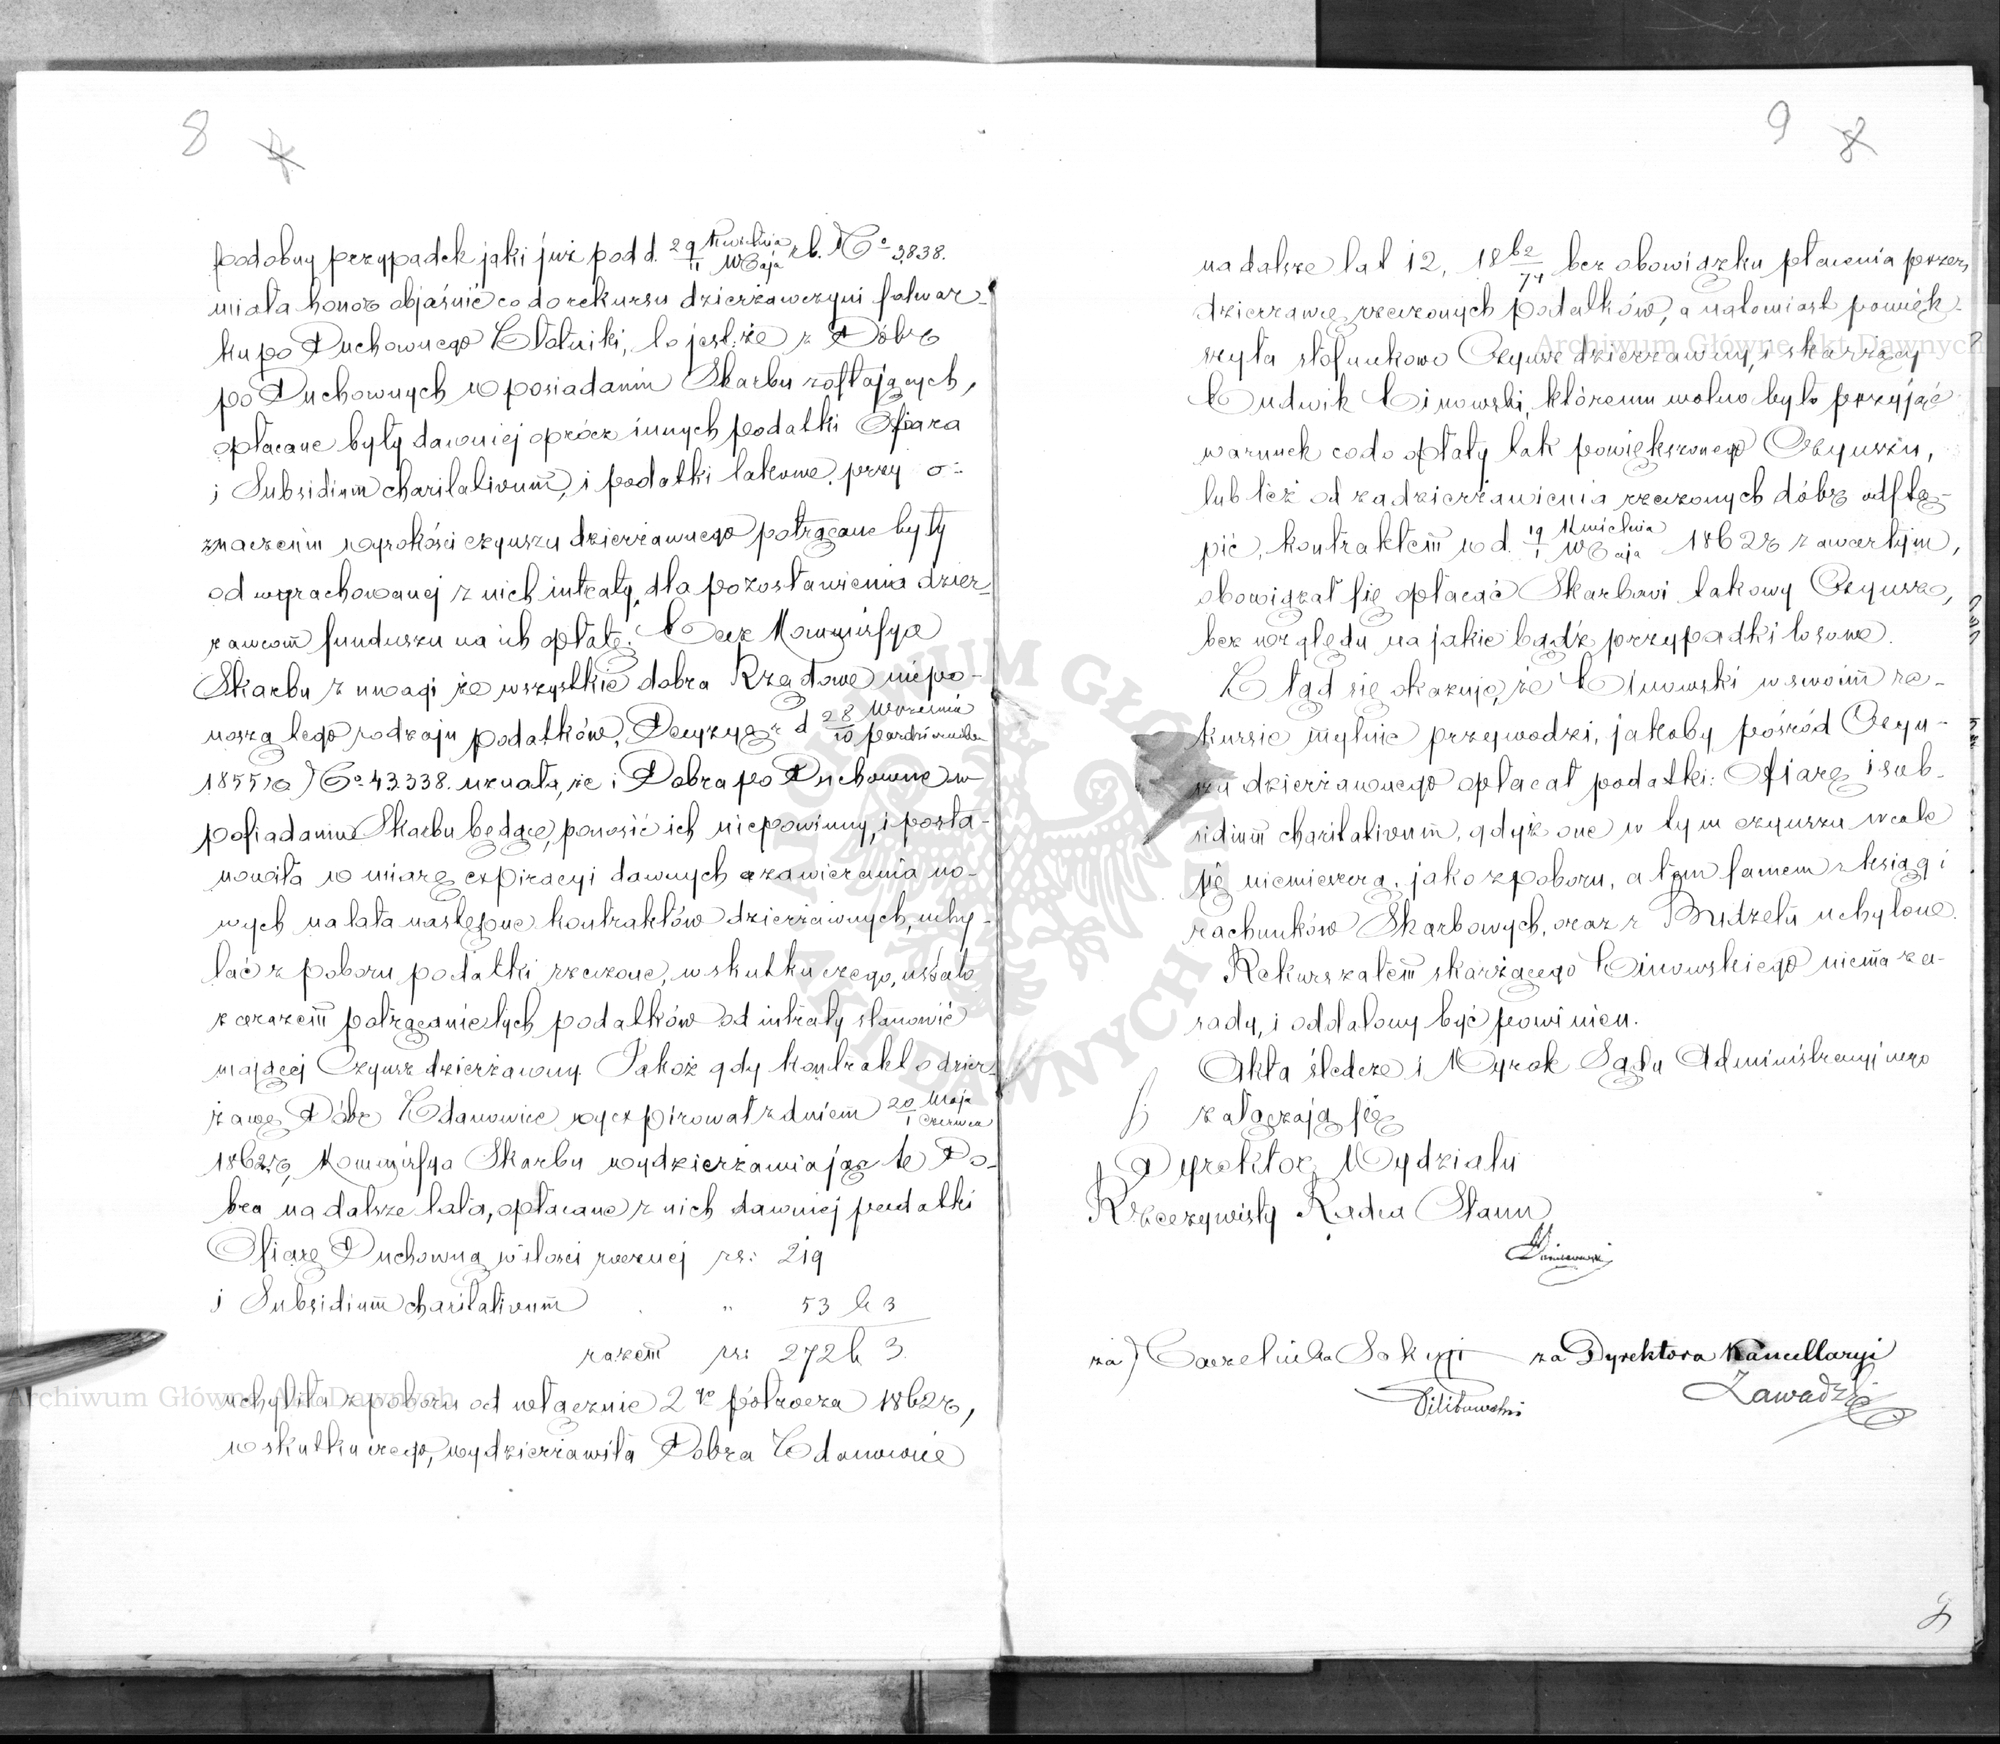 8
podobny przypadek jaki już pod d. 29/11 Kwietnia/Maja rb. No 3838.
miała honor objaśnić co do rekursu dzierżawczyni folwar-
ku po Duchownego Złotniki, to jest: że z Dóbr
po Duchownych w posiadaniu Skarbu zostających,
opłacane były dawniej oprócz innych podatki Ofiara
i Subsidium charitativum, i podatki takowe, przy o-
znaczeniu wysokości czynszu dzierżawnego potrącane były
od wyrachowanej z nich intraty, dla pozostawienia dzier-
żawcom funduszu na ich opłatę. Lecz Kommissya
Skarbu z uwagi że wszystkie dobra Rządowe niepo-
noszą tego rodzaju podatków, Decyzyą z d 28/10 Września/Października
1855 r. No 43.338. uznała, że i Dobra po Duchowne w
posiadaniu Skarbu będące, ponosić ich niepowinny, i posta-
nowiła w miarę expiracyi dawnych a zawierania no-
wych na lata następne kontraktów dzierżawnych, uchy-
lać z poboru podatki rzeczone, w skutku czego, ustało
zarazem potrącanie tych podatków od intraty stanowić
mającej Czynsz dzierżawny. Jakoż gdy kontrakt o dzier-
żawę Dóbr Zdanowice wyexpirował z dniem 20/1 Maja/Czerwca
1862 r, Kommissya Skarbu wydzierżawiając te Do-
bra na dalsze lata, opłacane z nich dawniej podatki
Ofiarę Duchowną w ilości rocznej rs: 219
i Subsidium charitativum . " 53 k 3
razem rs: 272 k 3.
uchyliła z poboru od włącznie 2go półrocza 1862 r,
w skutku czego, wydzierżawiła Dobra Zdanowice
9 8
na dalsze lat 12, 18 62/74 bez obowiązku płacenia przez
dzierżawcę rzeczonych podatków, a natomiast powięk-
szyła stosunkowo Czynsz dzierżawny, i skarżący
Ludwik Linowski, któremu wolno było przyjąć
warunek co do opłaty tak powiększonego Czynszu,
lub też od zadzierżawienia rzeczonych dóbr odstą-
pić, kontraktem w d. 19/1 Kwietnia/Maja 1862 r zawartym,
obowiązał się opłacać Skarbowi takowy Czynsz,
bez względu na jakie bądź przypadki losowe.
Ztąd się okazuje, że Linowski w swoim re-
kursie mylnie przywodzi, jakoby pośród Czyn-
szu dzierżawnego opłacał podatki: Ofiarę i sub-
sidium charitativum, gdyż one w tym czynszu wcale
się niemieszczą, jako z poboru, a tym samem z ksiąg i
rachunków Skarbowych, oraz z Budżetu uchylone.
Rekurs zatem skarżącego Linowskiego niema za-
sady, i oddalony być powinien.
Akta śledcze i Wyrok Sądu Administracyjnego
załączają się
Dyrektor Wydziału
Rzeczywisty Radca Stanu
za) Naczelnika Sekcyi
za Dyrektora Kancellaryi
Zawadzki
Archiwum Główne Akt Dawnych
Archiwum Główne Akt Dawnych
ARCHIWUM GŁÓWNE AKT DAWNYCH